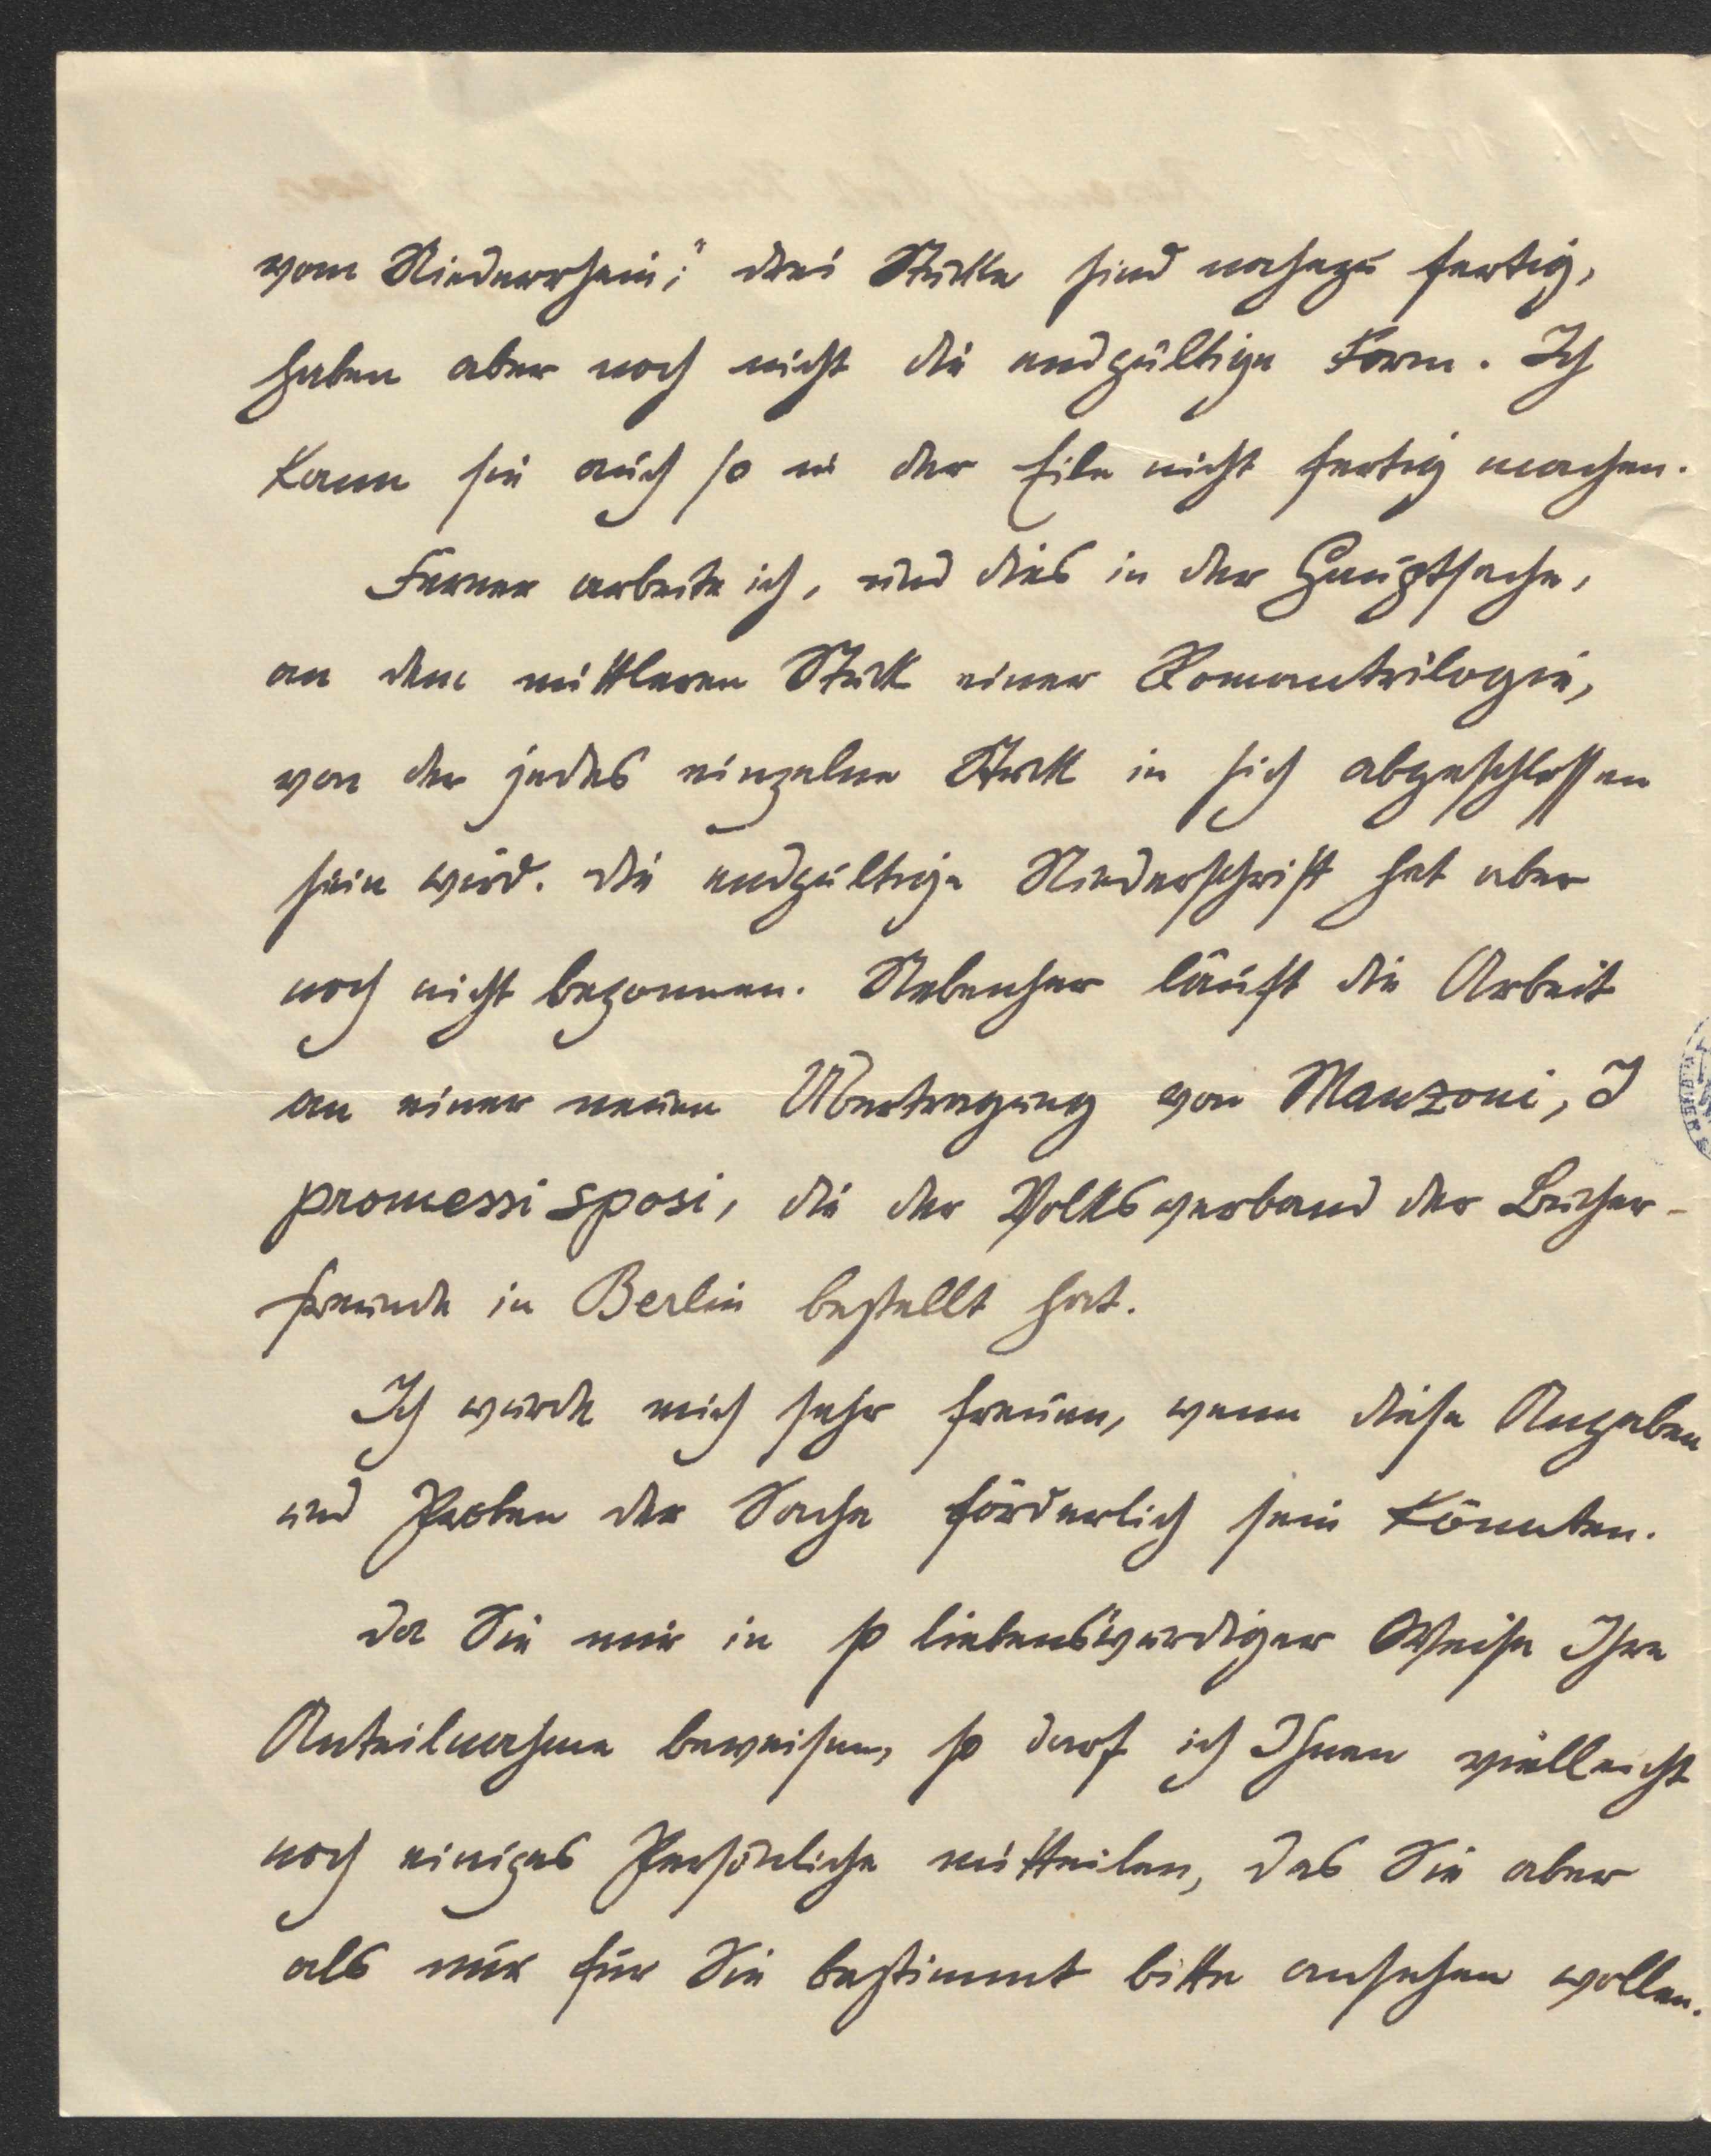 vom Niederrhein;" drei Stücke sind nahezu fertig,
haben aber noch nicht die endgültige Form. Ich
kann sie auch so in der Eile nicht fertig machen.
Ferner arbeite ich, und dies in der Hauptsache,
an dem mittleren Stück einer Romantrilogie,
von der jedes einzelne Stück in sich abgeschlossen
sein wird. Die endgültige Niederschrift hat aber
noch nicht begonnen. Nebenher läuft die Arbeit
an einer neuen Übertragung von Manzoni, I
promessi sposi, die der Volksverband der Bücher-
freunde in Berlin bestellt hat.
Ich würde mich sehr freuen, wenn diese Angaben
und Proben der Sache förderlich sein könnten.
Da Sie mir in so liebenswürdiger Weise Ihre
Anteilnahme beweisen, so darf ich Ihnen vielleicht
noch einiges Persönliche mitteilen, das Sie aber
als nur für Sie bestimmt bitte ansehen wollen.